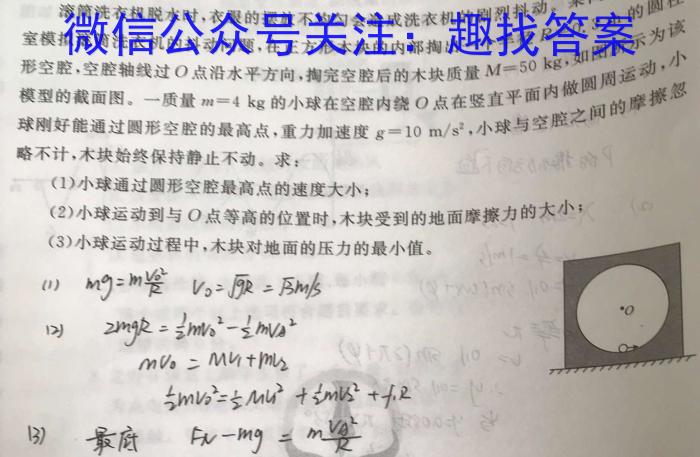 滚筒洗衣机脱水时,衣服的摆放不均匀会造成洗衣机的剧烈抖动。
微信公众号关注：趣找答案
形空腔,空腔轴线过O点沿水平方向,掏完空腔后的木块质量M=50 kg,如图所示为该
模型的截面图。一质量m=4 kg的小球在空腔内绕O点在竖直平面内做圆周运动,小
球刚好能通过圆形空腔的最高点,重力加速度g=10 m/s²,小球与空腔之间的摩擦忽
略不计,木块始终保持静止不动。求:
(1)小球通过圆形空腔最高点的速度大小;
(2)小球运动到与O点等高的位置时,木块受到的地面摩擦力的大小;
(3)小球运动过程中,木块对地面的压力的最小值。
(1) mg=m v₀²/R v₀=√gR=√3m/s
(2) 2mgR=½mv₀²-½mvA²
mv₀=Mv₁+mv₂
½mv₀²=½Mv₁²+½mv₂²+f·R
(3) 最底 FN-mg=m vA²/R
O